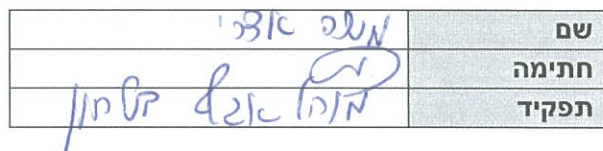 שם משה אדרי
חתימה
תפקיד מנהל אגף בטחון